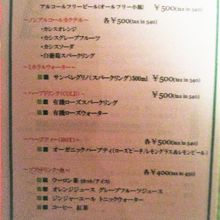 アルコールフリービール(オールフリー小瓶) ¥500(tax in 540)
～ノンアルコールカクテル～ 各¥500(tax in 540)
・カシスオレンジ
・カシスグレープフルーツ
・カシスソーダ
・白葡萄スパークリング
～ミネラルウォーター～
サンペレグリノ(スパークリング)500ml ¥500(tax in 540)
～ハーブドリンク(COLD)～ 各¥500(tax in 540)
有機ローズスパークリング
有機ローズウォーター
～ハーブティー(HOT)～ 各¥500(tax in 540)
オーガニックハーブティ(ローズヒップ/レモングラス&レモンピール)
～ソフトドリンク・他～ 各¥400(tax in 432)
ウーロン茶
オレンジジュース グレープフルーツジュース
ジンジャーエール トニックウォーター
コーヒー 紅茶